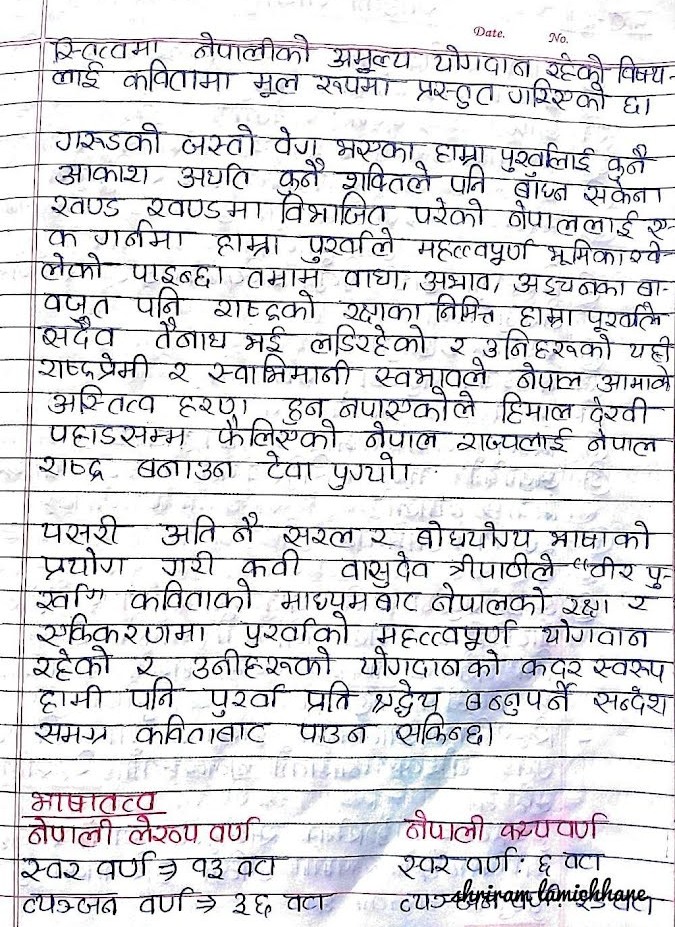 Date. No.
स्तित्वमा नेपालीको अमूल्य योगदान रहेको विषय-
लाई कवितामा मूल रूपमा प्रस्तुत गरिएको छ।
गरूडको जस्तो वेग भएका हाम्रा पुर्खालाई कुनै
आकाश अर्थात कुनै शक्तिले पनि बाँध्न सकेना
खण्ड खण्डमा विभाजित परेको नेपाललाई ए-
क गर्नमा हाम्रा पुर्खाले महत्त्वपूर्ण भूमिका खे
लेको पाइन्छ। तमाम वाधा, अभाव, अड्चनका बा-
वजुत पनि राष्ट्रको रक्षाका निमित्त हाम्रा पूर्खाले
सदैव तैनाथ भई लडिरहेको र उनिहरूको यही
राष्ट्रप्रेमी र स्वाभिमानी स्वभावले नेपाल आमाको
अस्तित्व हरण हुन नपाएकोले हिमाल देखी
पहाडसम्म फैलिएको नेपाल राज्यलाई नेपाल
राष्ट्र बनाउन टेवा पुग्यो।
यसरी अति नै सरल र बोधयोग्य भाषाको
प्रयोग गरी कवी वासुदेव त्रीपाठीले "वीर पु-
र्खा" कविताको माध्यमबाट नेपालको रक्षा र
एकिकरणमा पुर्खाको महत्त्वपूर्ण योगदान
रहेको र उनीहरूको योगदानको कदर स्वरूप
हामी पनि पुर्खा प्रति श्रद्धेय बन्नुपर्ने सन्देश
समग्र कविताबाट पाउन सकिन्छ।
भाषातत्व
नेपाली लेख्य वर्ण नेपाली कथ्य वर्ण
स्वर वर्ण ⇒ १३ वटा स्वर वर्ण: ६ वटा
व्यञ्जन वर्ण ⇒ ३६ वटा व्यञ्जन वर्ण: वटा
shriram lamichhane